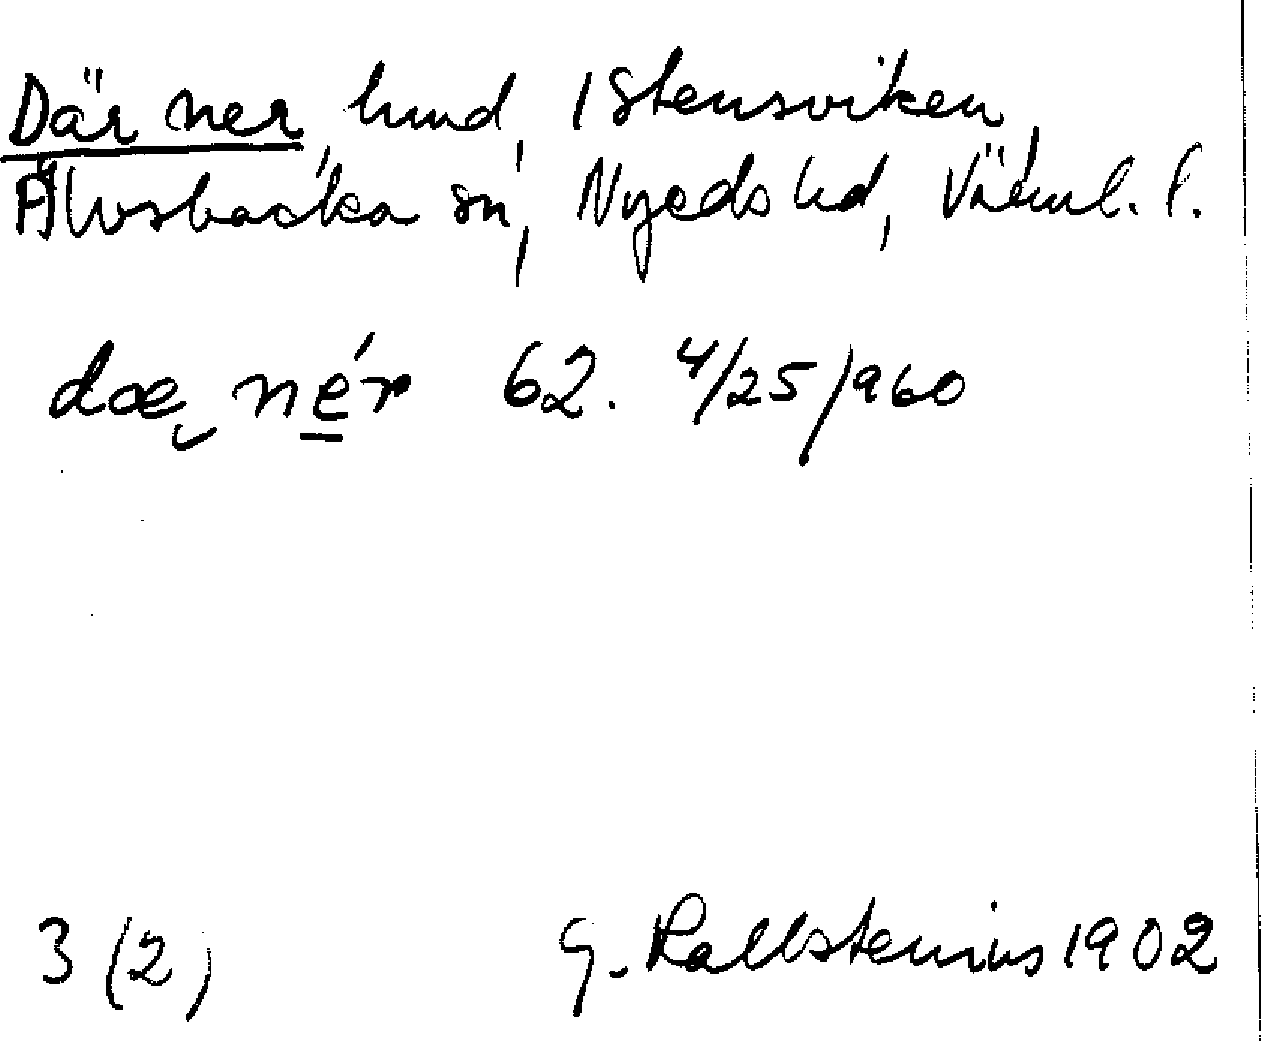 Där ner, hmd, 1 Stensviken,
Älvsbacka sn, Nyeds hd, Värml. l.
dæ̮ nér 62. 4/25/960
3 (2) G. Kallstenius 1902